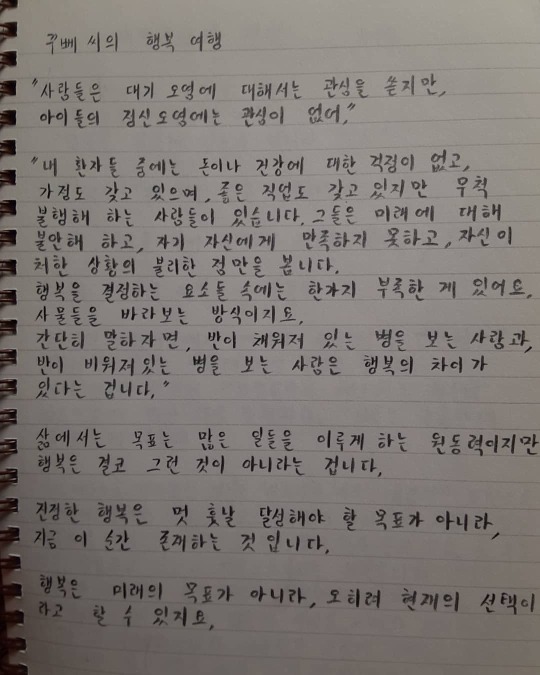 꾸뻬 씨의 행복 여행
"사람들은 대기 오염에 대해서는 관심을 쏟지만,
아이들의 정신 오염에는 관심이 없어."
"내 환자들 중에는 돈이나 건강에 대한 걱정이 없고,
가정도 갖고 있으며, 좋은 직업도 갖고 있지만 무척
불행해 하는 사람들이 있습니다. 그들은 미래에 대해
불안해 하고, 자기 자신에게 만족하지 못하고, 자신이
처한 상황의 불리한 점만을 봅니다.
행복을 결정하는 요소들 속에는 한가지 부족한 게 있어요.
사물들을 바라보는 방식이지요.
간단히 말하자면, 반이 채워져 있는 병을 보는 사람과,
반이 비워져 있는 병을 보는 사람은 행복의 차이가
있다는 겁니다."
삶에서는 목표는 많은 일들을 이루게 하는 원동력이지만
행복은 결코 그런 것이 아니라는 겁니다.
진정한 행복은 먼 훗날 달성해야 할 목표가 아니라,
지금 이 순간 존재하는 것입니다.
행복은 미래의 목표가 아니라, 오히려 현재의 선택이
라고 할 수 있지요.